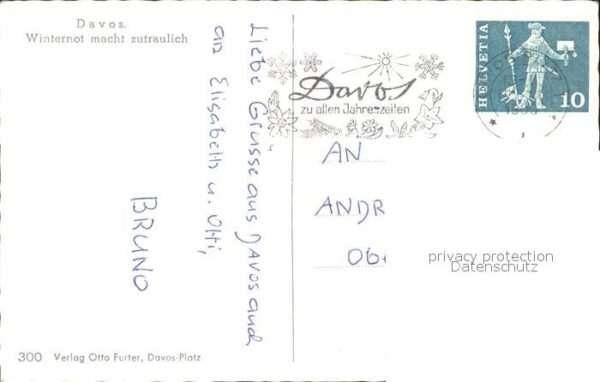 Davos.
Winternot macht zutraulich
Liebe Grüsse aus DAVOS auch
an Elisabeth u. Otti,
BRUNO
300 Verlag Otto Furter, Davos-Platz
Davos
zu allen Jahreszeiten
HELVETIA
10
AN
ANDR
Ob
privacy protection
Datenschutz